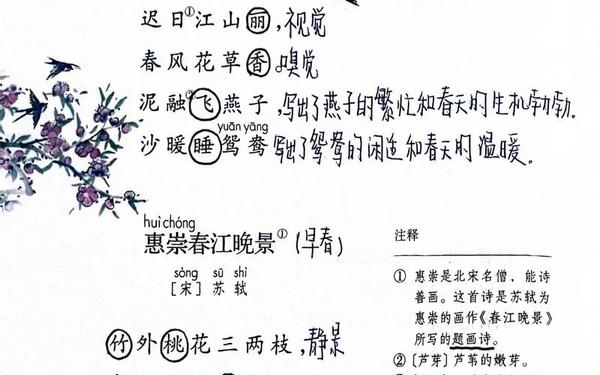 迟日①江山丽,视觉
春风花草香。嗅觉
泥融②飞燕子,写出了燕子的繁忙和春天的生机勃勃.
yuān yāng
沙暖睡鸳鸯 写出了鸳鸯的闲适和春天的温暖。
huì chóng
惠崇春江晚景①(早春)
sòng sū shì
[宋] 苏 轼
竹外桃花三两枝,静景
注释
① 惠崇是北宋名僧,能诗
善画。这首诗是苏轼为
惠崇的画作《春江晚景》
所写的题画诗。
②〔芦芽〕芦苇的嫩芽。